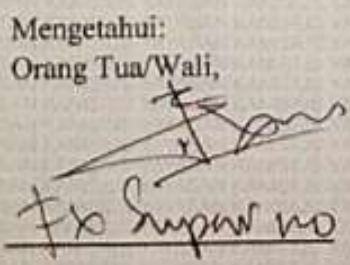 Mengetahui:
Orang Tua/Wali,
Fx Suparno